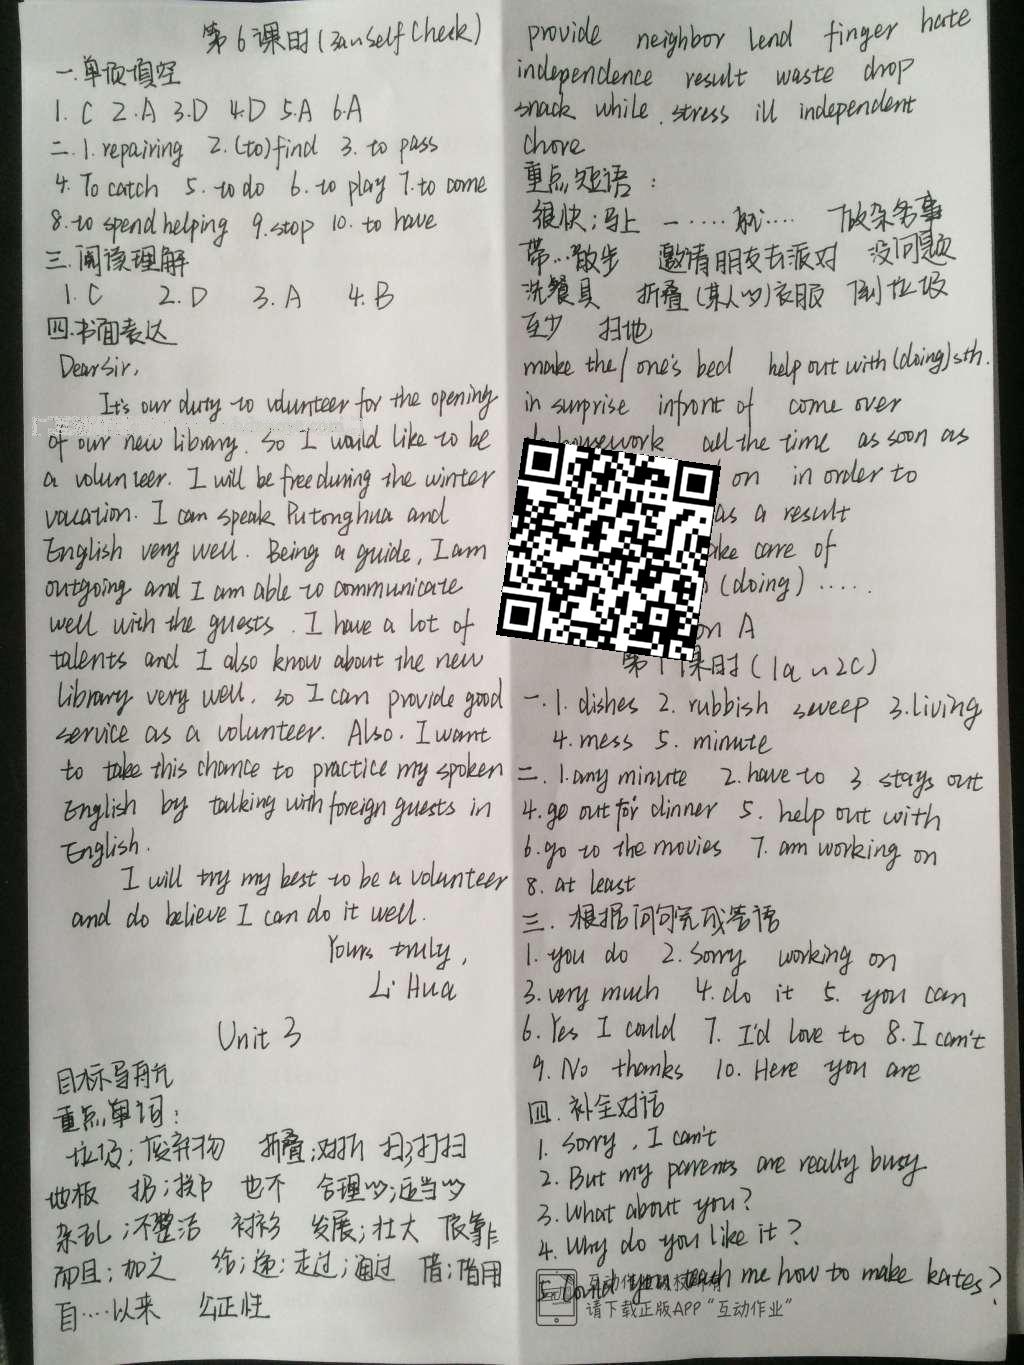 第6课时(3a~Self Check)
一.单项填空
1. C 2. A 3. D 4. D 5. A 6. A
二.1. repairing 2. (to) find 3. to pass
4. To catch 5. to do 6. to play 7. to come
8. to spend helping 9. stop 10. to have
三.阅读理解
1. C 2. D 3. A 4. B
四.书面表达
Dear Sir,
It's our duty to volunteer for the opening
of our new library. So I would like to be
a volunteer. I will be free during the winter
vacation. I can speak Putonghua and
English very well. Being a guide, I am
outgoing and I am able to communicate
well with the guests. I have a lot of
talents and I also know about the new
library very well. So I can provide good
service as a volunteer. Also. I want
to take this chance to practice my spoken
English by talking with foreign guests in
English.
I will try my best to be a volunteer
and do believe I can do it well.
Yours truly,
Li Hua
Unit 3
目标导航
重点单词:
垃圾;废弃物 折叠;对折 扫;打扫
地板 扔;掷 也不 合理的;适当的
杂乱;不整洁 衬衫 发展;壮大 依靠
而且;加之 给;递;走过;通过 借;借用
自……以来 公正性
provide neighbor lend finger hate
independence result waste drop
snack while stress ill independent
chore
重点短语:
很快;马上 一……就…… 做杂务事
带…散步 邀请朋友去派对 没问题
洗餐具 折叠(某人的)衣服 倒垃圾
至少 扫地
make the/one's bed help out with (doing) sth.
in surprise in front of come over
housework all the time as soon as
on in order to
as a result
care of
(doing) .....
on A
第1课时(1a~2c)
一.1. dishes 2. rubbish sweep 3. living
4. mess 5. minute
二.1. any minute 2. have to 3 stays out
4. go out for dinner 5. help out with
6. go to the movies 7. am working on
8. at least
三.根据问句完成答语
1. you do 2. Sorry working on
3. very much 4. do it 5. you can
6. Yes I could 7. I'd love to 8. I can't
9. No thanks 10. Here you are
四.补全对话
1. Sorry, I can't
2. But my parents are really busy
3. What about you?
4. Why do you like it?
5. Could you teach me how to make kates?
请下载正版APP“互动作业”